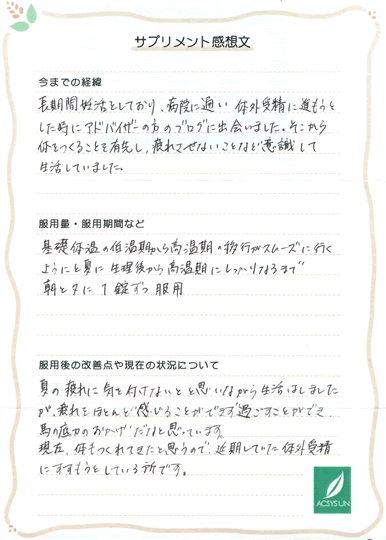 サプリメント感想文
今までの経緯
長期間妊活としており、病院に通い 体外受精に進もうと
した時にアドバイザーの方のブログに出会いました。そこから
体をつくることを優先し、疲れさせないことなど意識して
生活していました。
服用量・服用期間など
基礎体温の低温期から高温期の移行がスムーズに行く
ようにと夏に生理後から高温期にしっかりなるまで
朝と夕に 1錠ずつ 服用
服用後の改善点や現在の状況について
夏の疲れに気を付けないとと思いながら生活はしました
が、疲れをほとんど感じることができず過ごすことができ、
馬の底力のおかげだなと思っています。
現在、体もつくれてきたと思うので、延期していた体外受精
にすすもうとしている所です。
ACSYS UN